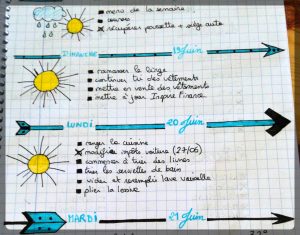 menu de la semaine
courses
récupérer poussette + siège auto
DIMANCHE 19 Juin
ramasser le linge
continuer tri des vêtements
mettre en vente des vêtements
mettre à jour
LUNDI 20 Juin
ranger la cuisine
modifier voiture (27/06)
commencer à trier des livres
trier les serviettes de bain
vider et remplir lave vaisselle
plier la lessive
MARDI 21 Juin